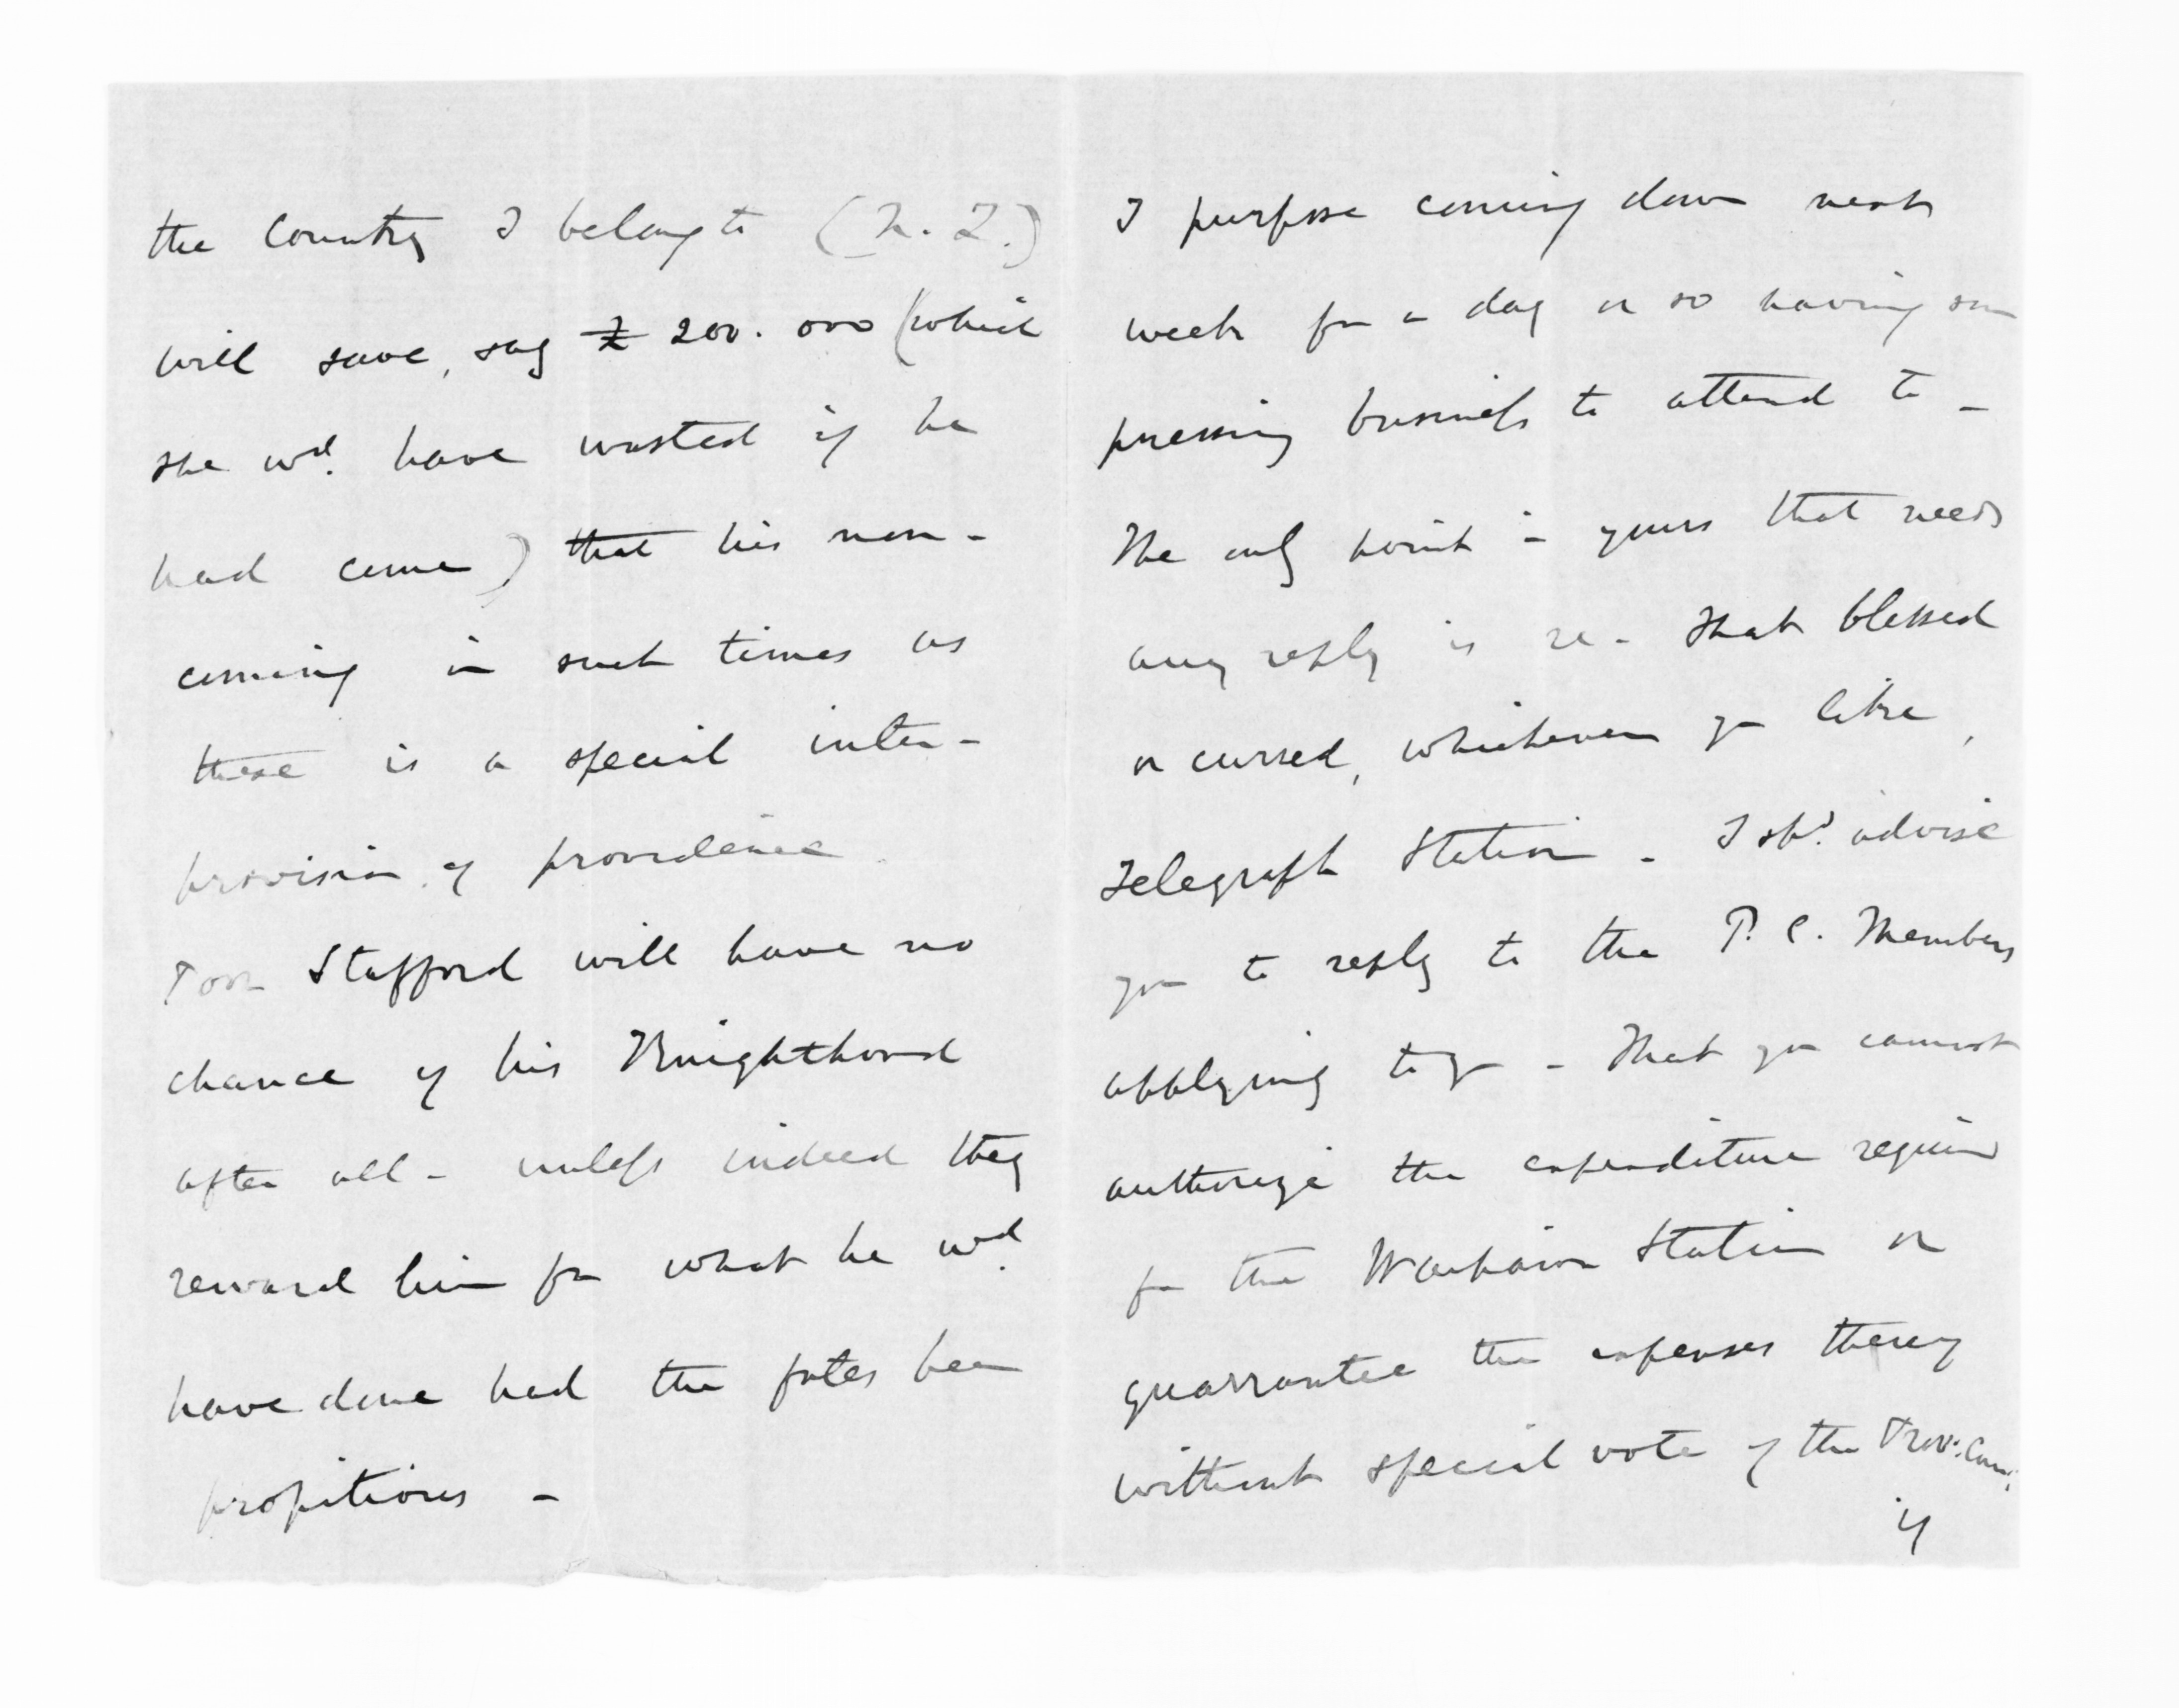 the Country I belong to (N. Z.)
will save, say £ 200.000 (which
she wd. have wasted if he
had come) that his non-
coming in such times as
these is a special inter-
provision of providence.
Poor Stafford will have no
chance of his Knighthood
after all - unless indeed they
reward him for what he wd.
have done had the fates been
propitious -
I purpose coming down next
week for a day or so having some
pressing business to attend to -
The only point in yours that needs
any reply is re - that blessed
or cursed, whichever you like,
Telegraph Station - I shd. advise
you to reply to the P. C. Members
applying to you - That you cannot
authorize the expenditure required
for the Waipawa Station or
guarrantee the expenses thereof
without special vote of the Prov: Counc:
if